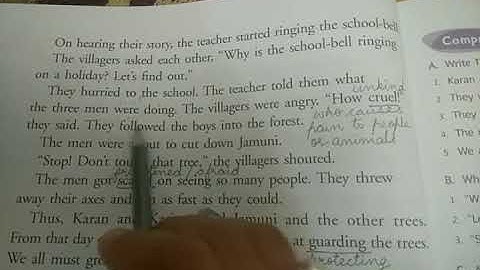 On hearing their story, the teacher started ringing the school-bell
The villagers asked each other, "Why is the school-bell ringing
on a holiday? Let's find out."
They hurried to the school. The teacher told them what
unkind
the three men were doing. The villagers were angry. "How cruel!"
who causes
they said. They followed the boys into the forest.
pain to people
The men were to cut down Jamuni.
or animals
"Stop! Don't that tree," the villagers shouted.
/afraid
The men got on seeing so many people. They threw
away their axes and as fast as they could.
Thus, Karan and Jamuni and the other trees.
From that day at guarding the trees.
protecting
We all must
Compr
A. Write T
1. Karan
2. They
3. They
4. The
5. We a
B. Wh
1. "W
2. "L
3.
4.
C.